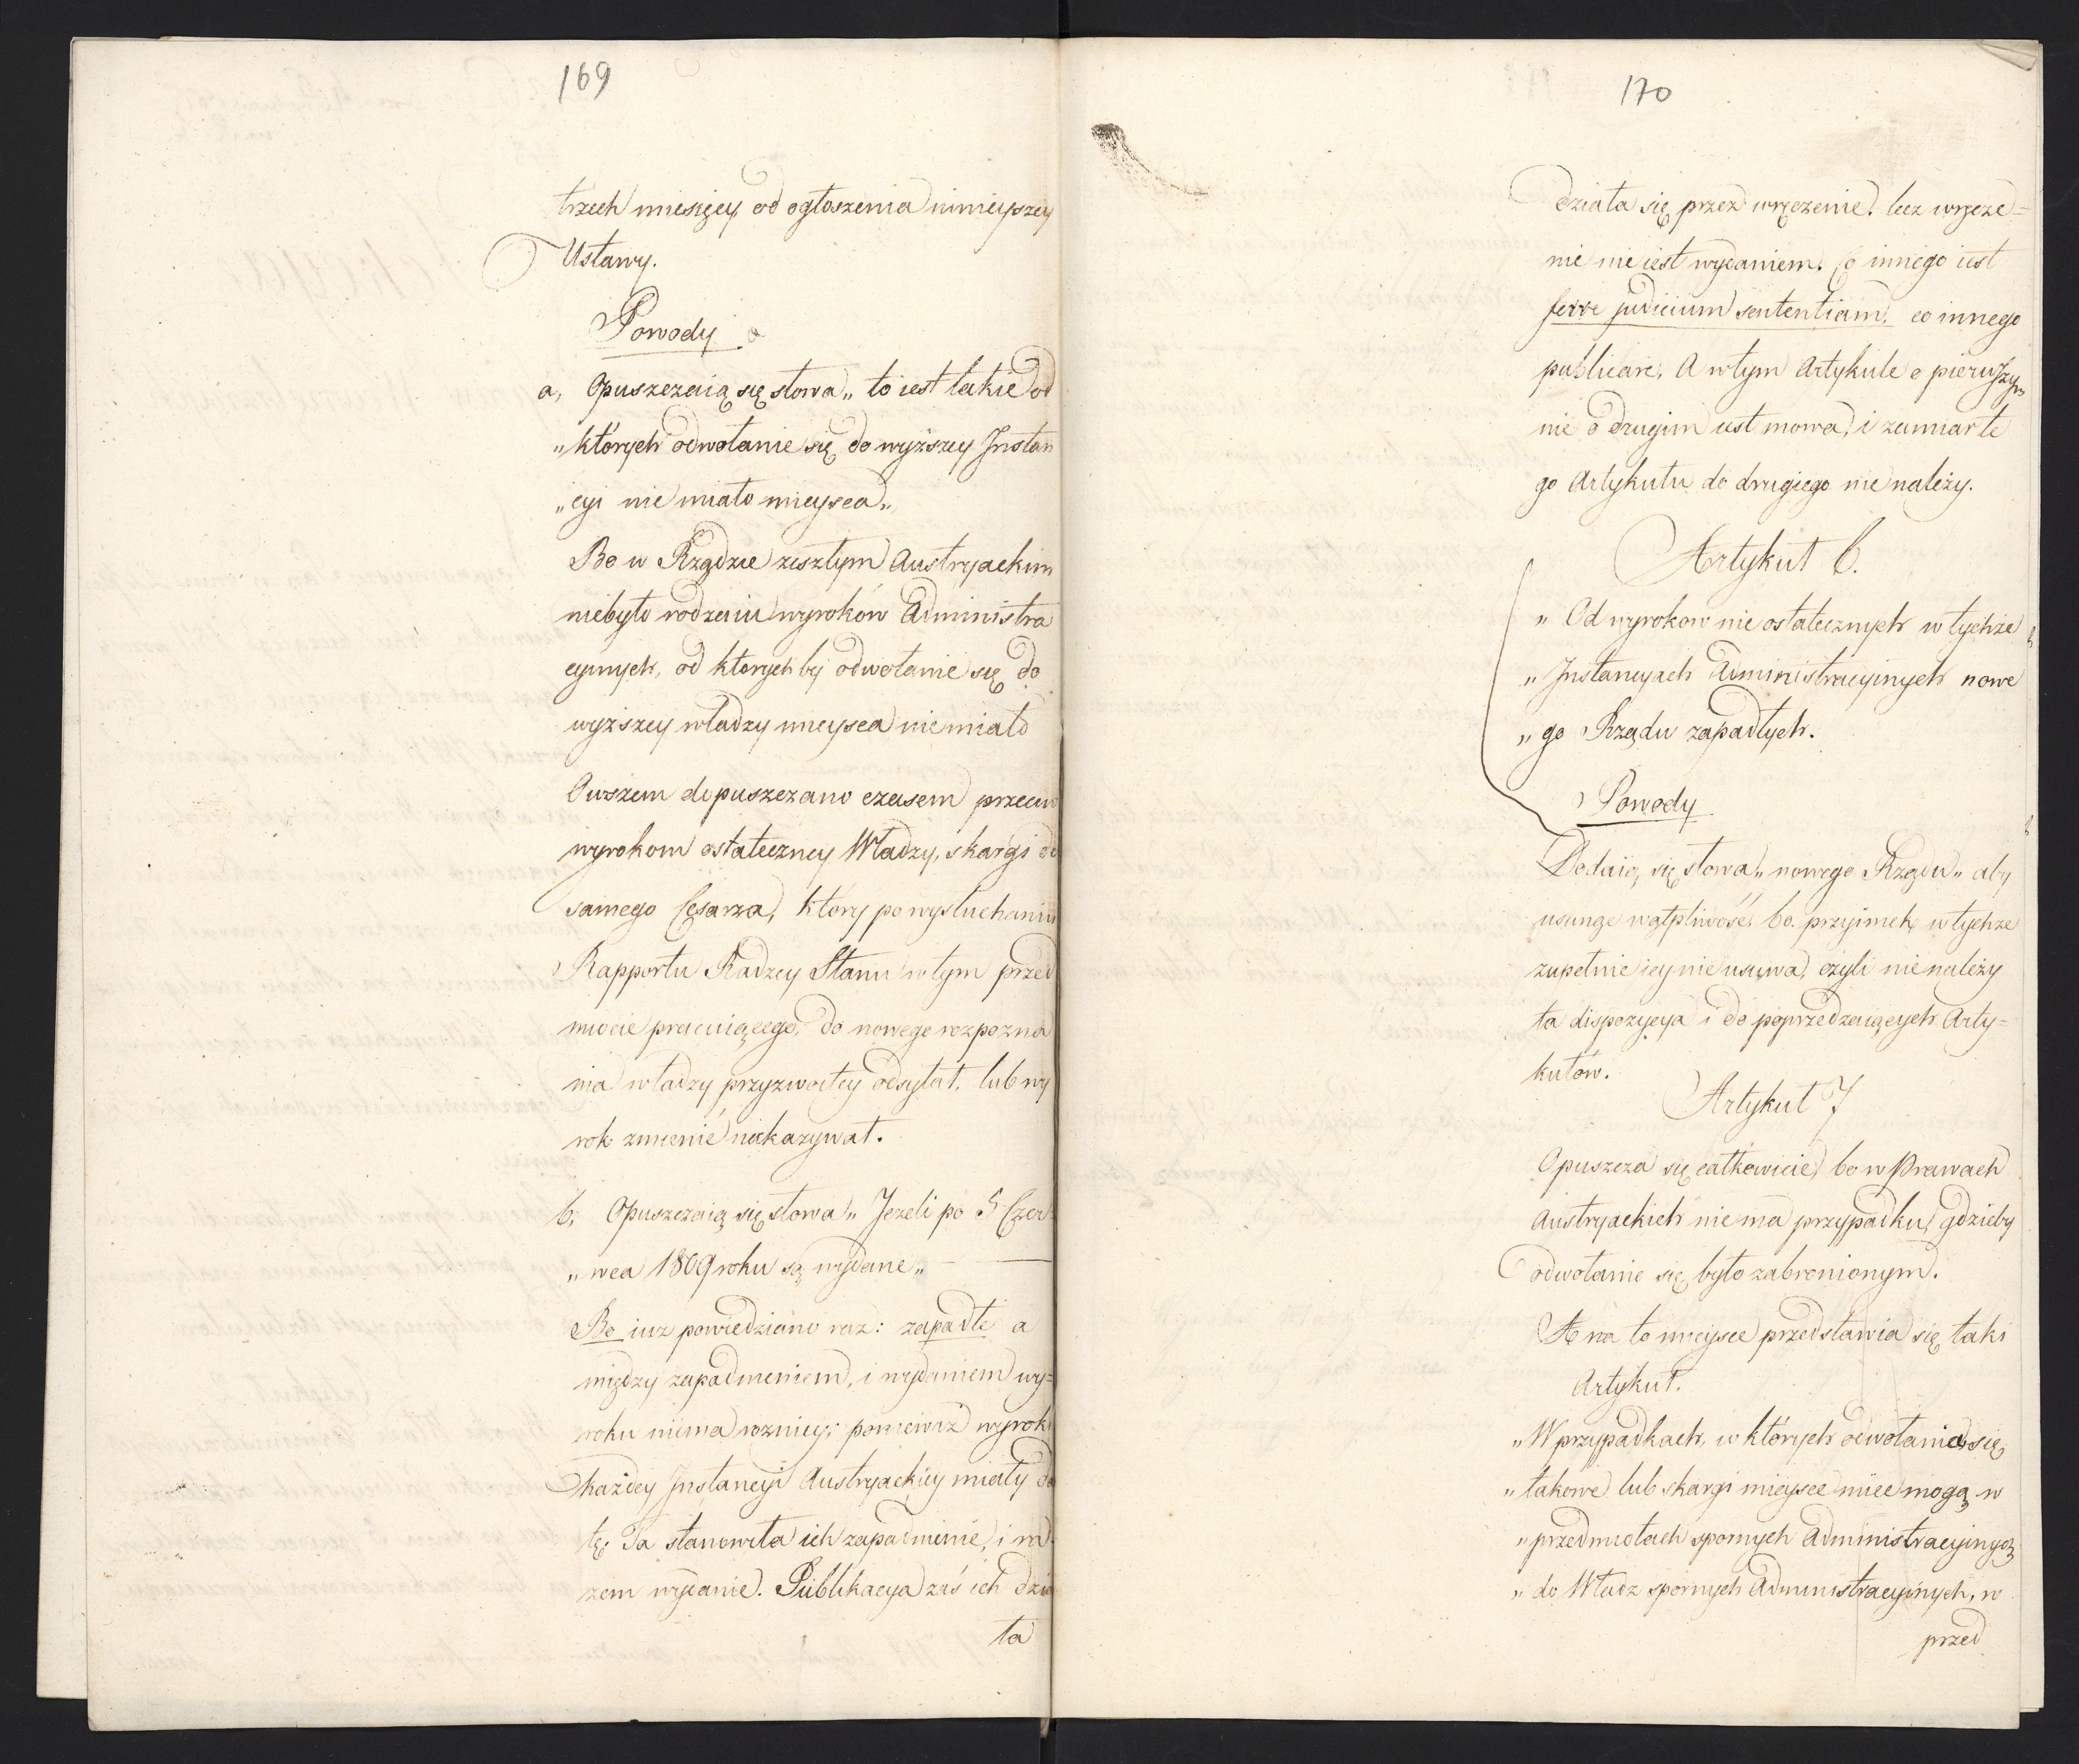 169
trzech miesięcy od ogłoszenia ninieyszey
Ustawy.
Powody
a, Opuszczaią się słowa „ to iest takie od
„ których odwołanie się do wyższey Instan
„ cyi nie miało mieysca „
Bo w Rządzie zeszłym Austryackim
niebyło rodzaiu wyroków Administra
cyinych, od którychby odwołanie się do
wyższey władzy mieysca nie miało
Owszem dopuszczano czasem przeciw
wyrokom ostateczney Władzy, skargi do
samego Cesarza, który po wysłuchaniu
Rapportu Radzcy Stanu w tym przed
miocie pracuiącego, do nowego rozpozna
nia władzy przyzwoitey odsyłał, lub wy
rok zmienić nakazywał.
b, Opuszczaią się słowa „ Jeżeli po 5 Czer
„ wca 1809 roku są wydane „
Bo iuz powiedziano raz: zapadłe a
między zapadnieniem, i wydaniem wy=
roku niema roznicy; ponieważ wyroki
każdey Instancyi Austryackiey miały da
tę. Ta stanowiła ich zapadnienie, i ra
zem wydanie. Publikacya zaś ich dzia
ła
170
działa się przez wręczenie. lecz wręcze=
nie nie iest wydaniem. Co innego iest
ferre judicium sententiam, co innego
publicare. A w tym Artykule o pierwszym
nie o drugim iest mowa, i zamiar te
go Artykułu do drugiego nie należy.
Artykuł 6.
„ Od wyrokow nie ostatecznych w tychże
„ Instancyach Administracyinych nowe
„ go Rządu zapadłych.
Powody
Dodaią się słowa „ nowego Rządu „ aby
usunąc wątpliwość, bo przyimek, w tychze
zupełnie iey nie usuwa, czyli nie należy
ta dispozycya i do poprzedzaiących Arty=
kułów.
Artykuł 7
Opuszcza się całkowicie, bo w Prawach
Austryackich nie ma przypadku, gdzieby
odwołanie się było zabronionym.
A na to mieysce przedstawia się taki
Artykuł.
„ W przypadkach, w których odwołania się
„ takowe lub skargi mieysce miec mogą w
„ przedmiotach spornych Administracyinych
„ do Władz spornych Administracyinych, w
przed